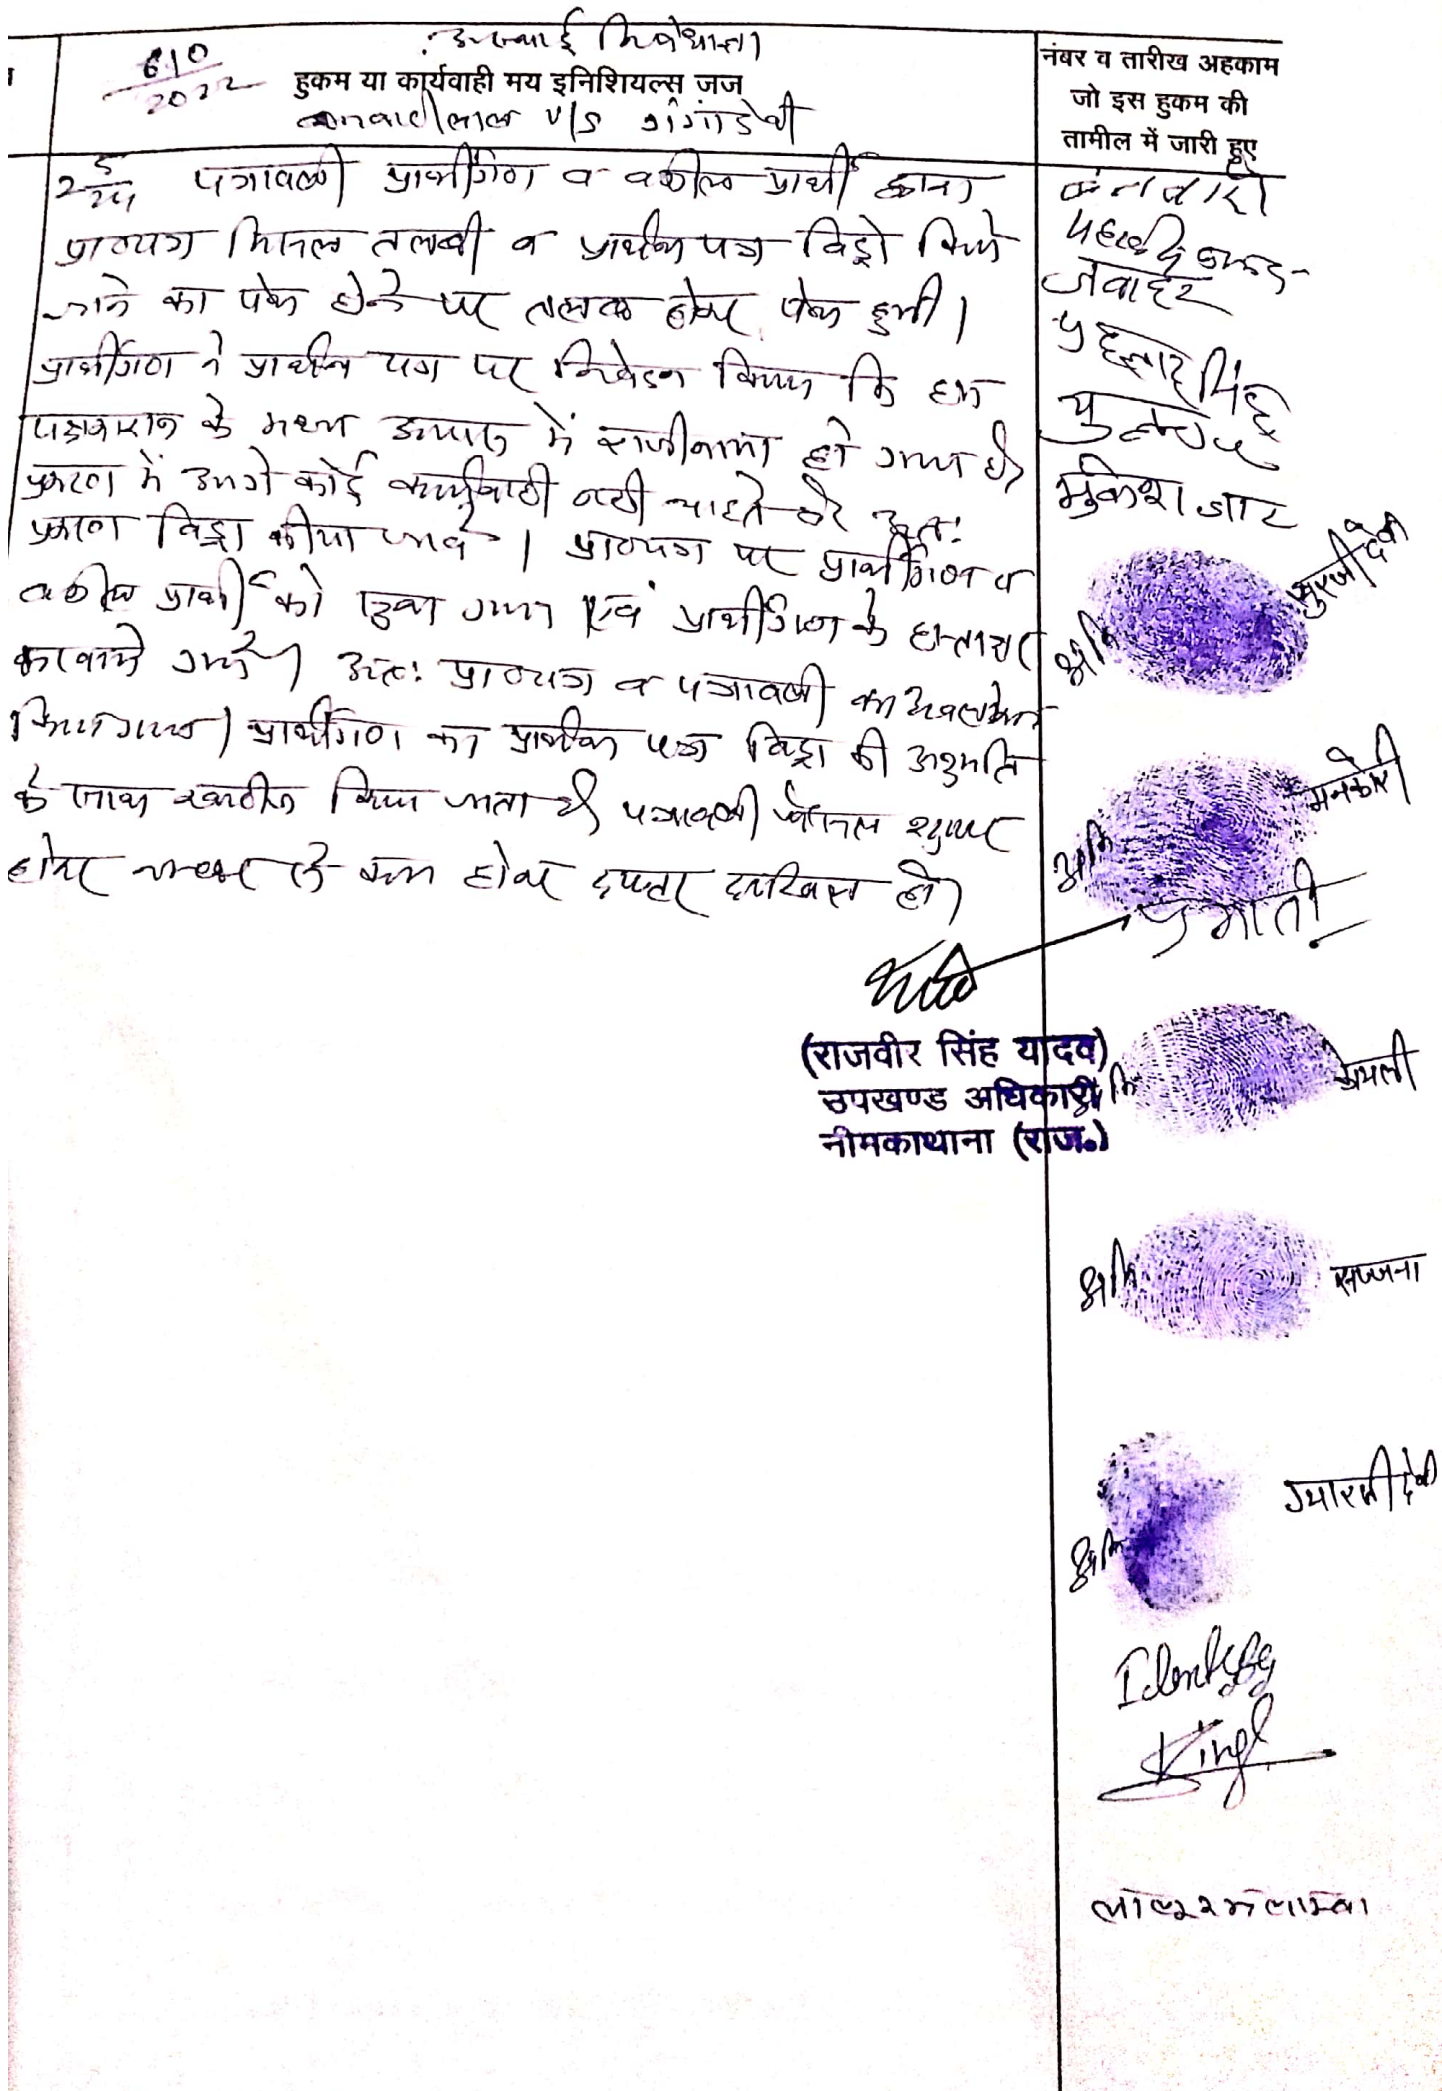 अस्थाई निषेधाज्ञा
610
2022
हुकम या कार्यवाही मय इनिशियल्स जज
बनवारीलाल v/s गंगादेवी
नंबर व तारीख अहकाम
जो इस हुकम की
तामील में जारी हुए
पत्रावली प्रार्थीगण व वकील प्रार्थी द्वारा
प्रा०पत्र मिसल तलबी व प्रार्थना पत्र विड्रो किये
जाने का पेश होने पर तलब होकर पेश हुयी।
प्रार्थीगण ने प्रार्थना पत्र पर निवेदन किया कि हम
पक्षकारान के मध्य आपस में राजीनामा हो गया है
प्रकरण में आगे कोई कार्यवाही नही चाहते है अतः
प्रकरण विड्रा कीया जावे। प्रा०पत्र पर प्रार्थीगण व
वकील प्रार्थी को सुना गया एवं प्रार्थीगण के हस्ताक्षर
करवाये गये। अतः प्रा०पत्र व पत्रावली का अवलोकन
किया गया। प्रार्थीगण का प्रार्थना पत्र विड्रा की अनुमति
के साथ खारीज किया जाता है पत्रावली फैसल शुमार
होकर नम्बर से कम होकर दफ्तर दाखिल हो।
(राजवीर सिंह यादव)
उपखण्ड अधिकारी
नीमकाथाना (राज०)
बनवारी
जवाहर
प्रहलाद सिंह
मुकेश जाट
सुरजी देवी
अ नि
मनकोरी
अ नि
प्रभाती
नि
अ नि
सज्जना
ग्यारसी देवी
अ नि